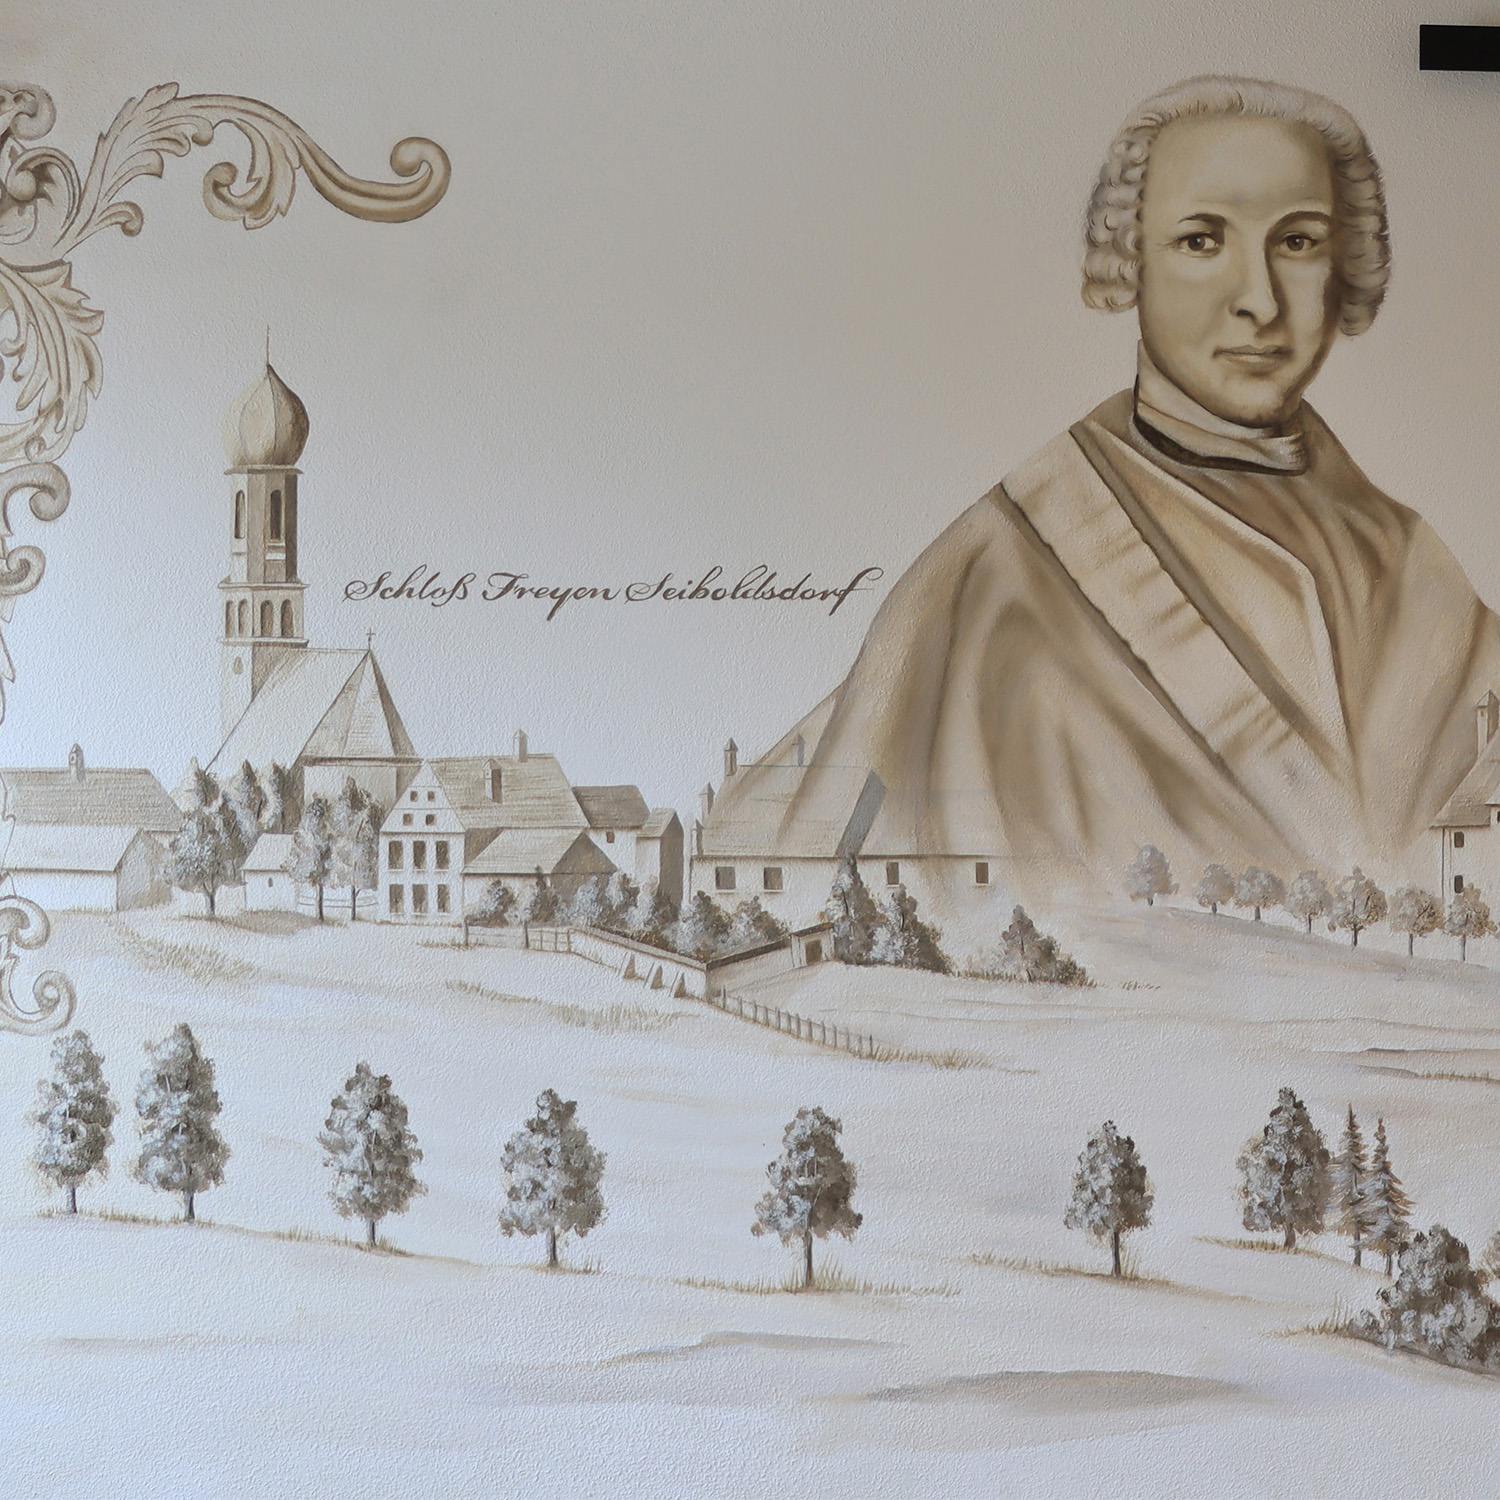 Schloß Freyen Seiboldsdorf